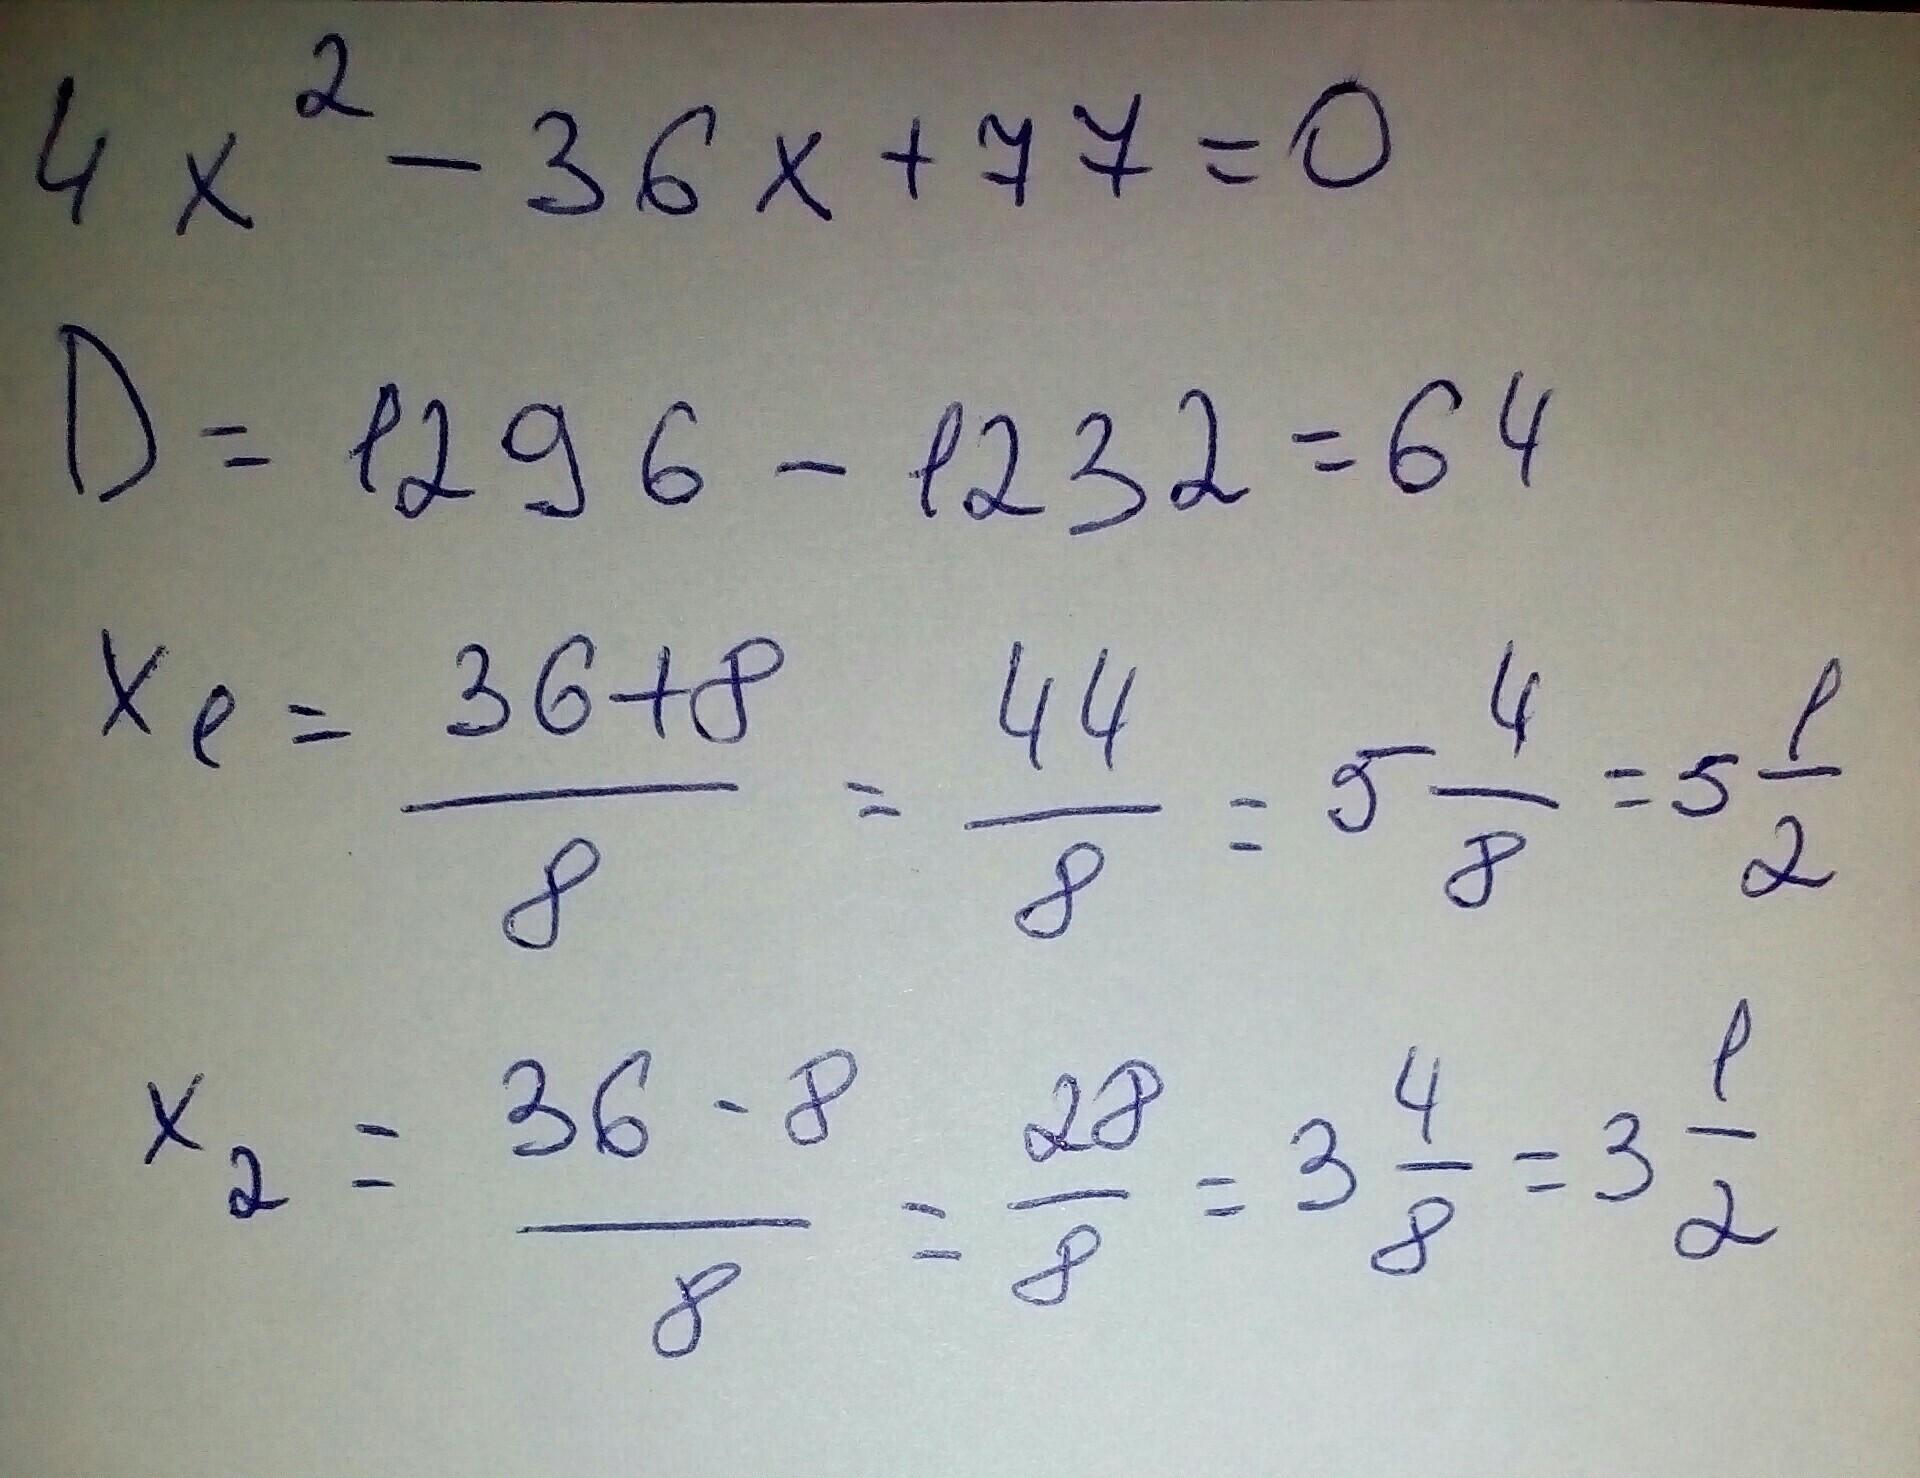 4x² - 36x + 77 = 0
D = 1296 - 1232 = 64
x₁ = (36+8)/8 = 44/8 = 5 4/8 = 5 1/2
x₂ = (36-8)/8 = 28/8 = 3 4/8 = 3 1/2